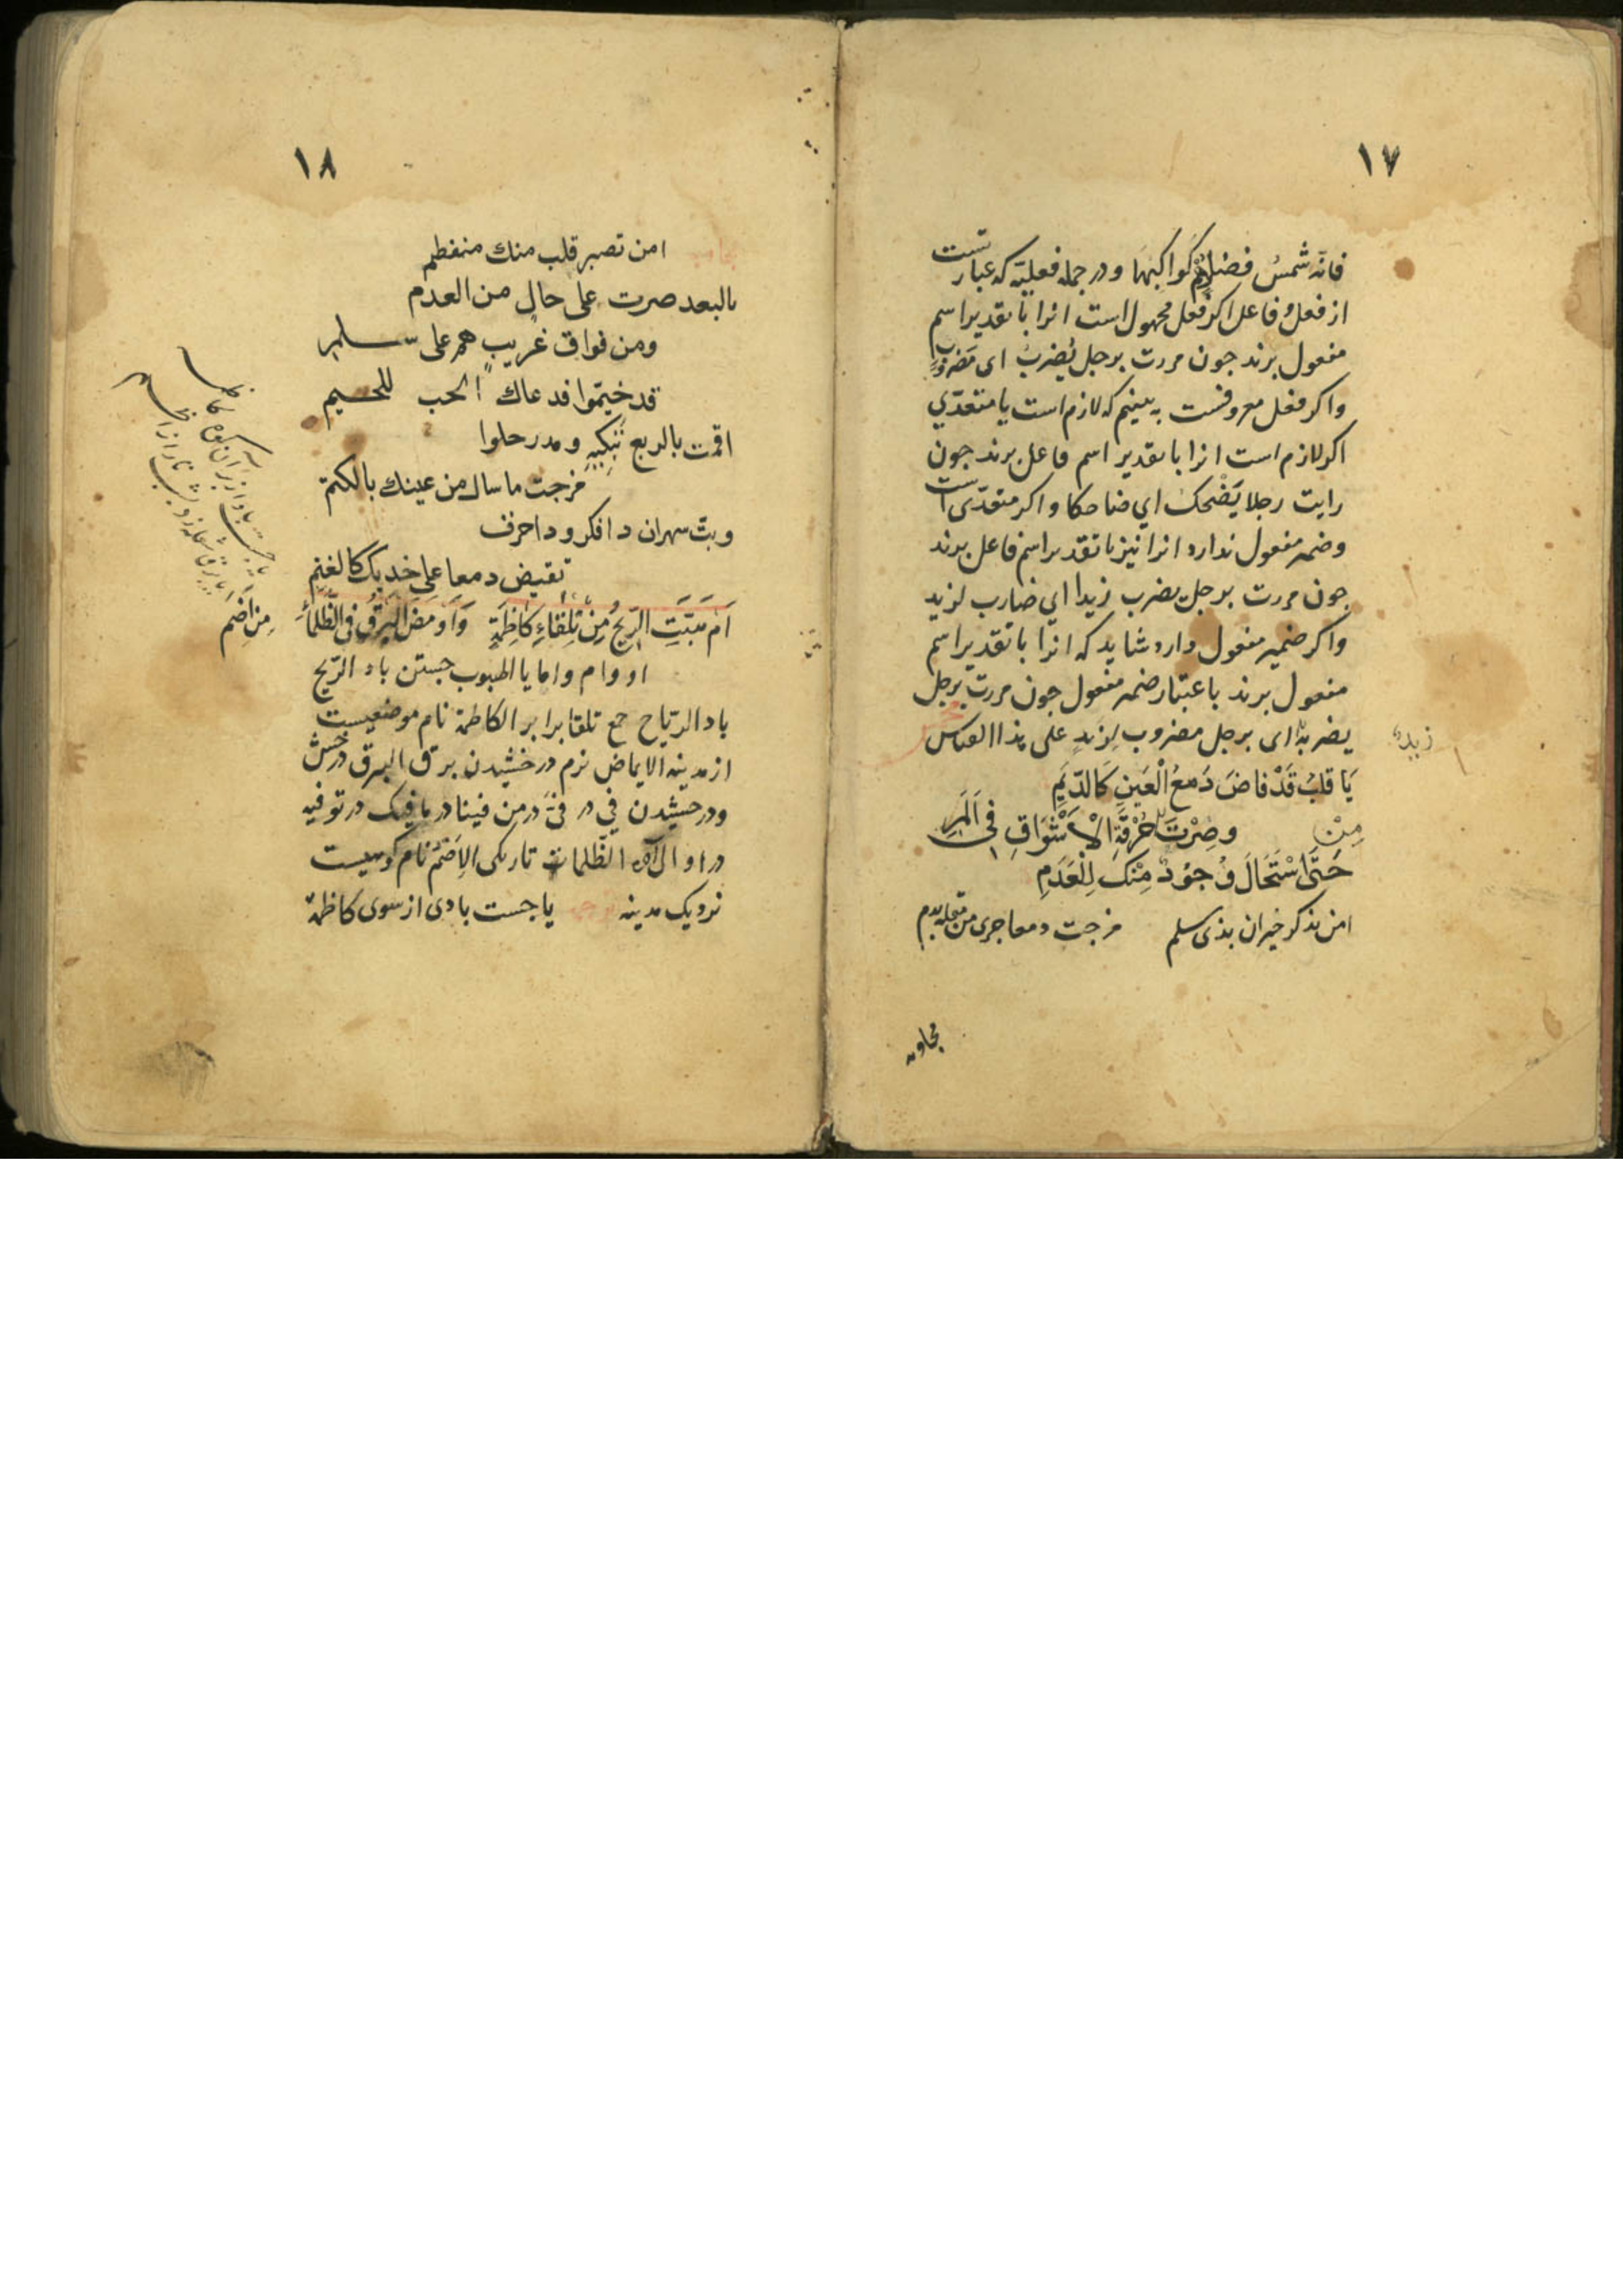 ١٧
فانّه شمسُ فضلٍ هُم كَواكبها و در جمله فعليّه كه عبارتست
از فعل و فاعل اكر فعل مجهول است انرا با تقدير اسم
مفعول برند جون مررت برجل يُضرب اى مضروبٍ
واكر فعل معروفست به بينيم كه لازم است يا متعدّي
اكر لازم است انرا با تقدير اسم فاعل برند جون
رايت رجلا يَضْحك اي ضاحكا و اكر متعدّى است
وضمير مفعول ندارد انرا نيز با تقدير اسم فاعل برند
جون مررت برجل يضرب زيدا اي ضارب لزيد
واكر ضمير مفعول دارد شايد كه انرا با تقدير اسم
مفعول برند باعتبار ضمير مفعول جون مررت برجل
يضربه اى برجل مضروب لزيدٍ على هذا القياس
زيد
يَا قلبُ قَدْ فاضَ دَمعُ الْعَينِ كَالدّيَمِ
وصِرْتَ مِنْ حُرْقَةِ الْاَشْوَاقِ فِى اَلَمِ
حَتَّى اسْتَحَالَ وُجوُدٌ مِنْكَ لِلْعَدَمِ
امن تذكر جيران بذى سلم مزجت دمعا جرى من مقلة بدم
١٨
امن تصبر قلب منك منفطم
بالبعد صرت على حال من العدم
ومن فواق غريب هم على سلم
قد خيّموا فدعاك الحب للحسيم
اقمت بالربع تبكيه و مدرحلوا
مزجت ما سال من عينك بالكتم
وبتّ سهران
تفيض دمعا على خديك كالغنم
اَم هَبَّتِ الرّيحُ مِن تِلقاءِ كاظِمَةٍ وَاَوْمَضَ البَرْقُ فى الظّلماءِ مِن اَضَمِ
او و ام و اما يا الهبوب جستن باد الرّيح
باد الرّياح جمع تلقا برابر الكاظمة نام موضعيست
از مدينه الايماض نرم درخشيدن برق البرق درخش
ودرخشيدن في در
الظّلمات تاريكى الاِضَم نام كوهيست
نزديك مدينه ترجمه يا جست بادى از سوى كاظمة